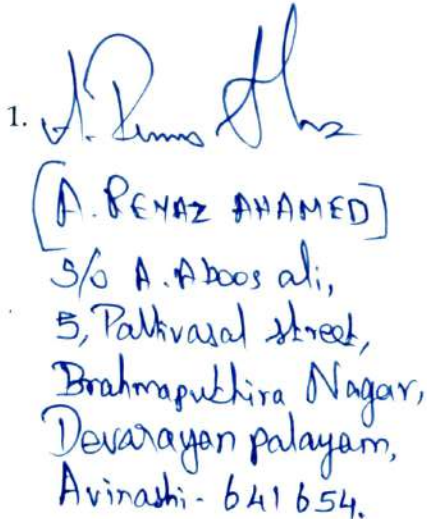 1.
[A. REYAZ AHAMED]
S/o A. Aboos ali,
5, Pallivasal street,
Brahmaputhira Nagar,
Devarayan palayam,
Avinashi - 641 654.